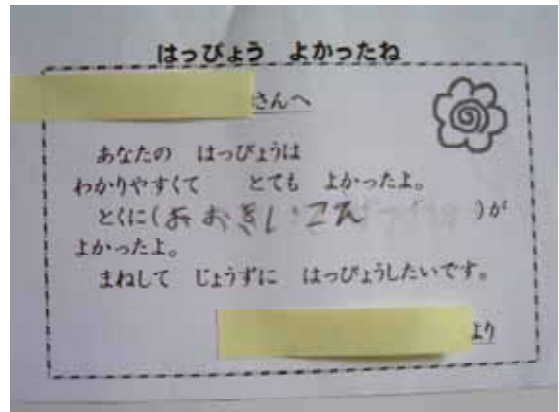 はっぴょう よかったね
さんへ
あなたの はっぴょうは
わかりやすくて とても よかったよ。
とくに(おおきいこえ)が
よかったよ。
まねして じょうずに はっぴょうしたいです。
より